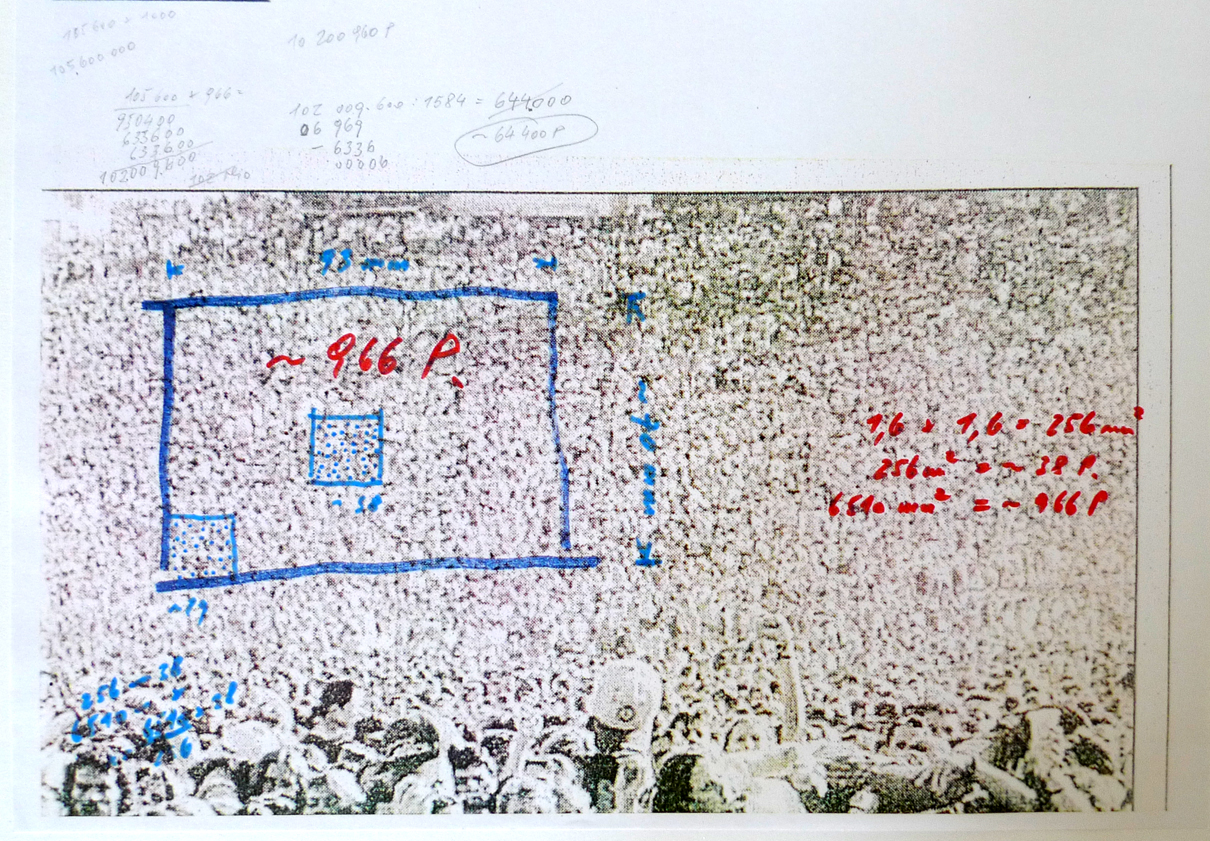 105600 × 1000
105.600 000
10 200 960 P
105600 × 966 =
950400
633600
633600
102.009.600
102 009.600 : 1584 = 644.000
06 969
- 6336
00006
~ 64 400 P
93 mm
~ 966 P.
~ 70 mm
~ 38
~ 29
1,6 × 1,6 = 256 mm²
256 m² = ~ 38 P.
6510 mm² = ~ 966 P
256 - 38